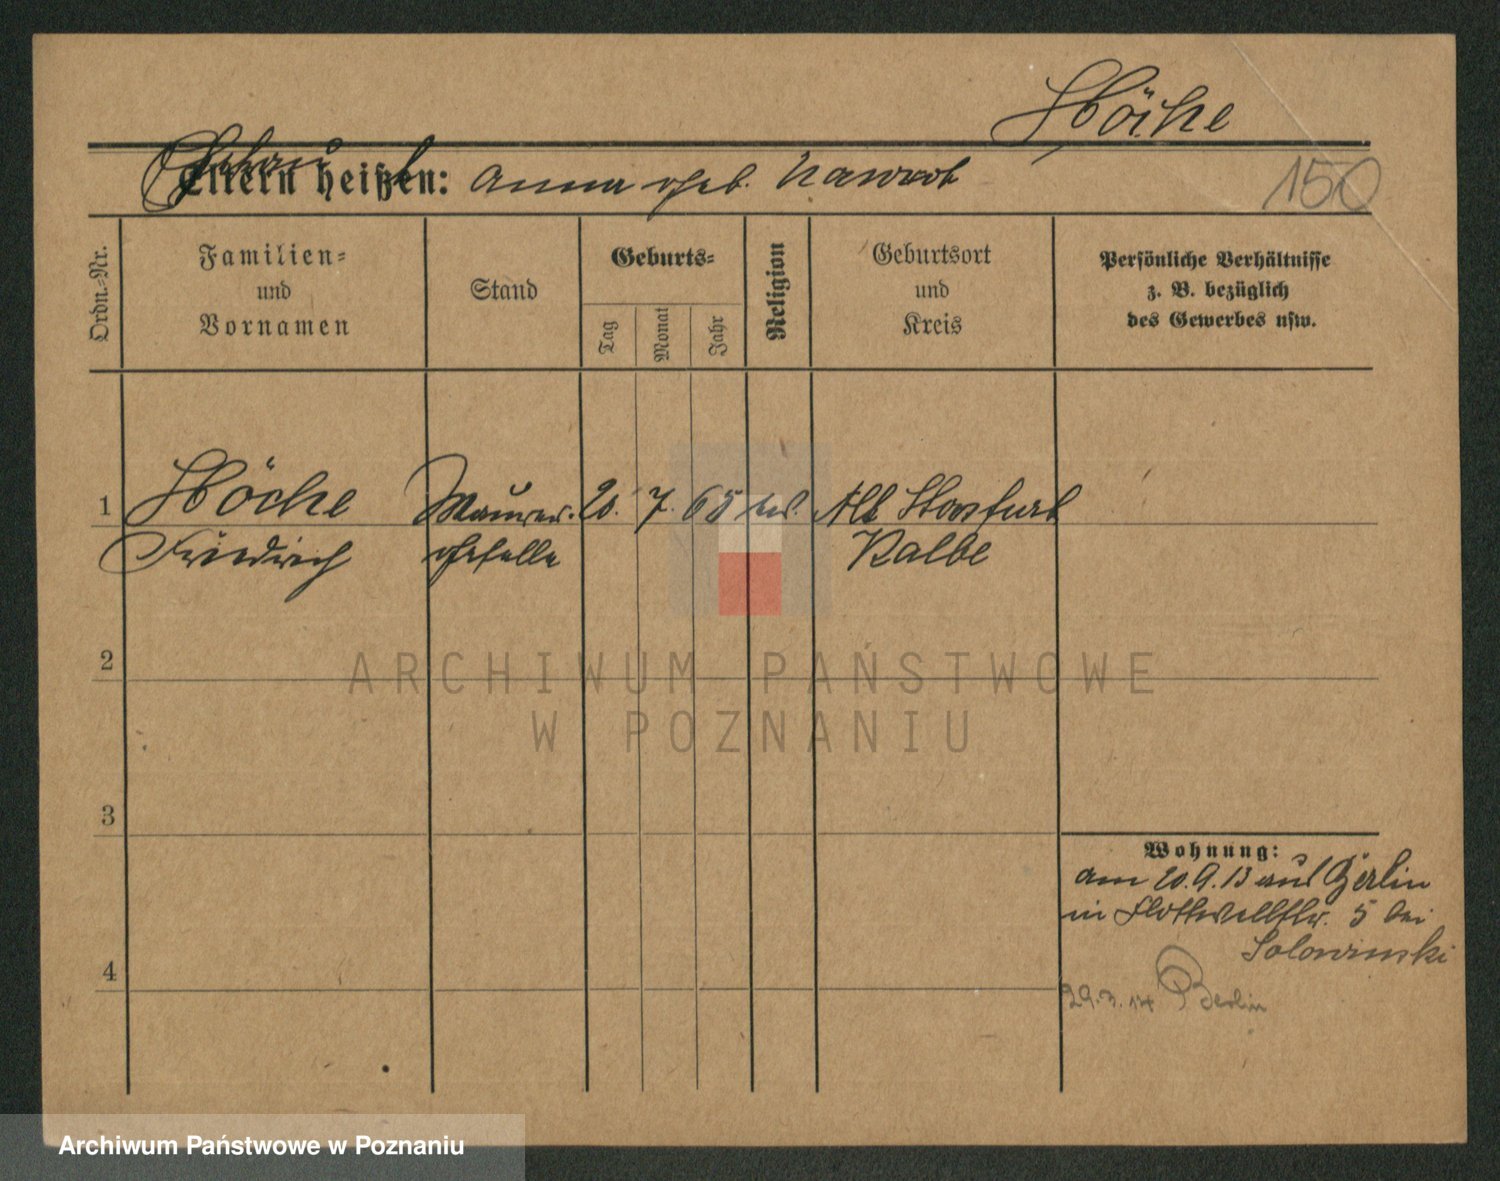 Höche
Eltern heißen: Anna geb. Nawrot
150
Ordn.-Nr.
Familien-
und
Vornamen
Stand
Geburts-
Tag
Monat
Jahr
Religion
Geburtsort
und
Kreis
Persönliche Verhältnisse
z. B. bezüglich
des Gewerbes usw.
1 Höche Maurer- 20. 7. 65 Alt Stassfurt
Friedrich geselle Kalbe
2
3
4
Wohnung:
am 20.9.13 aus Berlin
in Flottwellstr. 5 bei
29.3.14 Berlin
ARCHIWUM PAŃSTWOWE
W POZNANIU
Archiwum Państwowe w Poznaniu